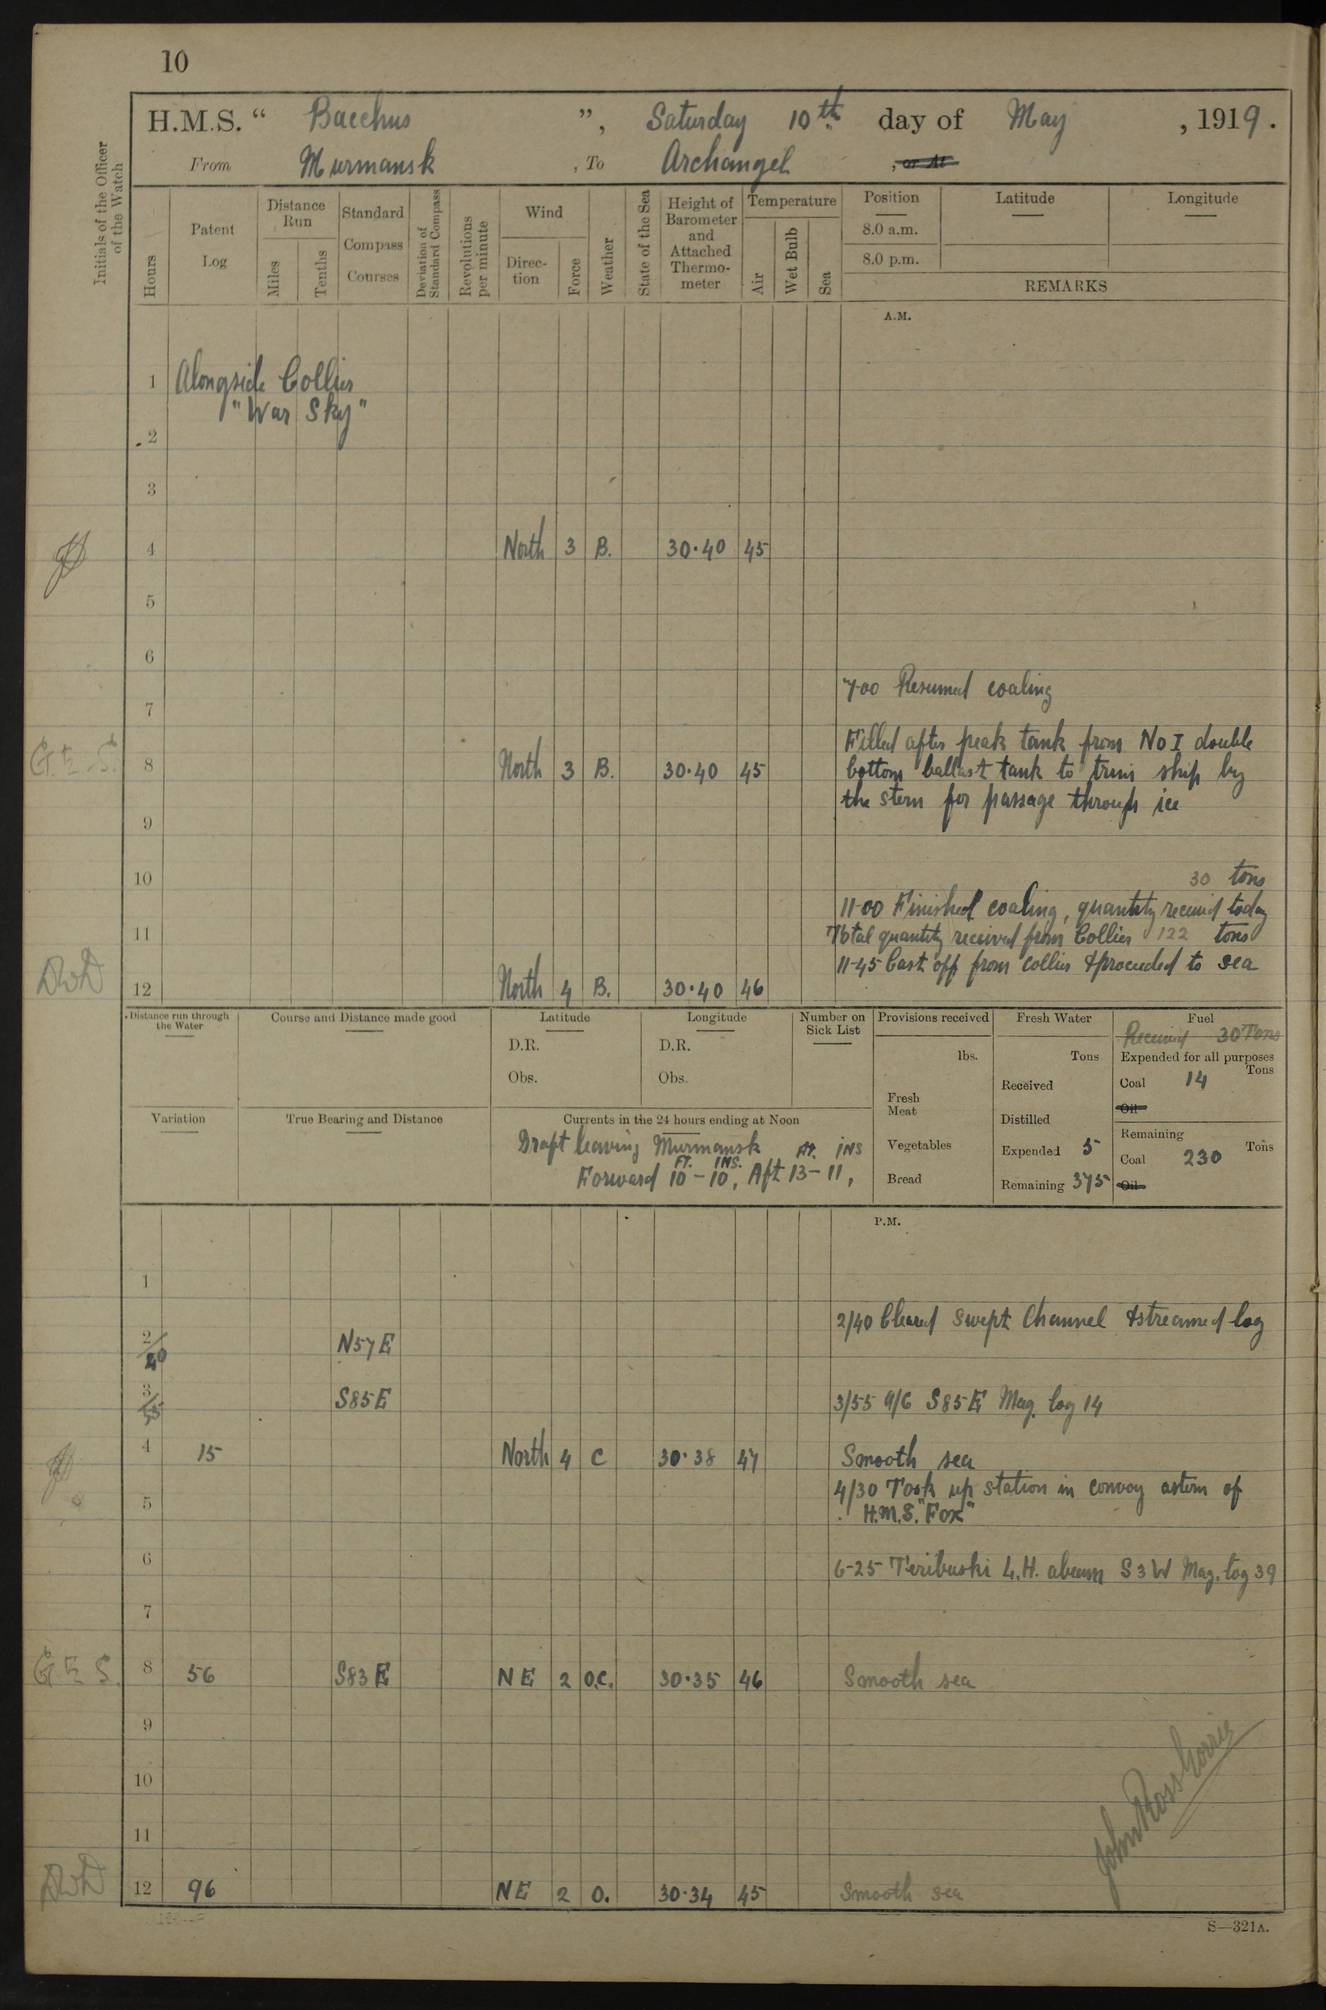 10
H.M.S. " Bacchus ", Saturday 10th day of May, 1919.
From Murmansk, To Archangel, or At
Initials of the Officer of the Watch
Hours
Patent Log
Distance Run
Miles
Tenths
Standard Compass Courses
Deviation of Standard Compass
Revolutions per minute
Wind
Direction
Force
Weather
State of the Sea
Height of Barometer and Attached Thermometer
Temperature
Air
Wet Bulb
Sea
Position
8.0 a.m.
8.0 p.m.
Latitude
Longitude
REMARKS
A.M.
1 Alongside Collier
"War Sky"
2
3
4 North 3 B. 30.40 45
5
6
7-00 Resumed coaling
7
Filled after peak tank from No I double
8 North 3 B. 30.40 45 bottom ballast tank to trim ship by
the stern for passage through ice
G.E.S.
9
10
30 tons
11-00 Finished coaling, quantity received today
11 Total quantity received from Collier 122 tons
11-45 Cast off from collier & proceeded to sea
DWD 12 North 4 B. 30.40 46
Distance run through the Water
Course and Distance made good
Latitude
D.R.
Obs.
Longitude
D.R.
Obs.
Number on Sick List
Provisions received
lbs.
Fresh Meat
Vegetables
Bread
Fresh Water
Tons
Received
Distilled
Expended 5
Remaining 375
Fuel
Received 30 Tons
Expended for all purposes
Tons
Coal 14
Oil
Remaining
Tons
Coal 230
Oil
Variation
True Bearing and Distance
Currents in the 24 hours ending at Noon
Draft leaving Murmansk FT. INS
FT. INS.
Forward 10-10, Aft 13-11,
P.M.
1
2/40 Cleared swept Channel & streamed log
2/40 N57E
3/55 S85E 3/55 A/C S85E Mag. log 14
4 15 North 4 C 30.38 47 Smooth sea
4/30 Took up station in convoy astern of
5 H.M.S. "Fox"
6 6-25 Teribuski L.H. abeam S3W Mag. log 39
7
G.E.S. 8 56 S83E NE 2 O.C. 30.35 46 Smooth sea
9
10
11
DWD 12 96 NE 2 O. 30.34 45 Smooth sea
S—321A.